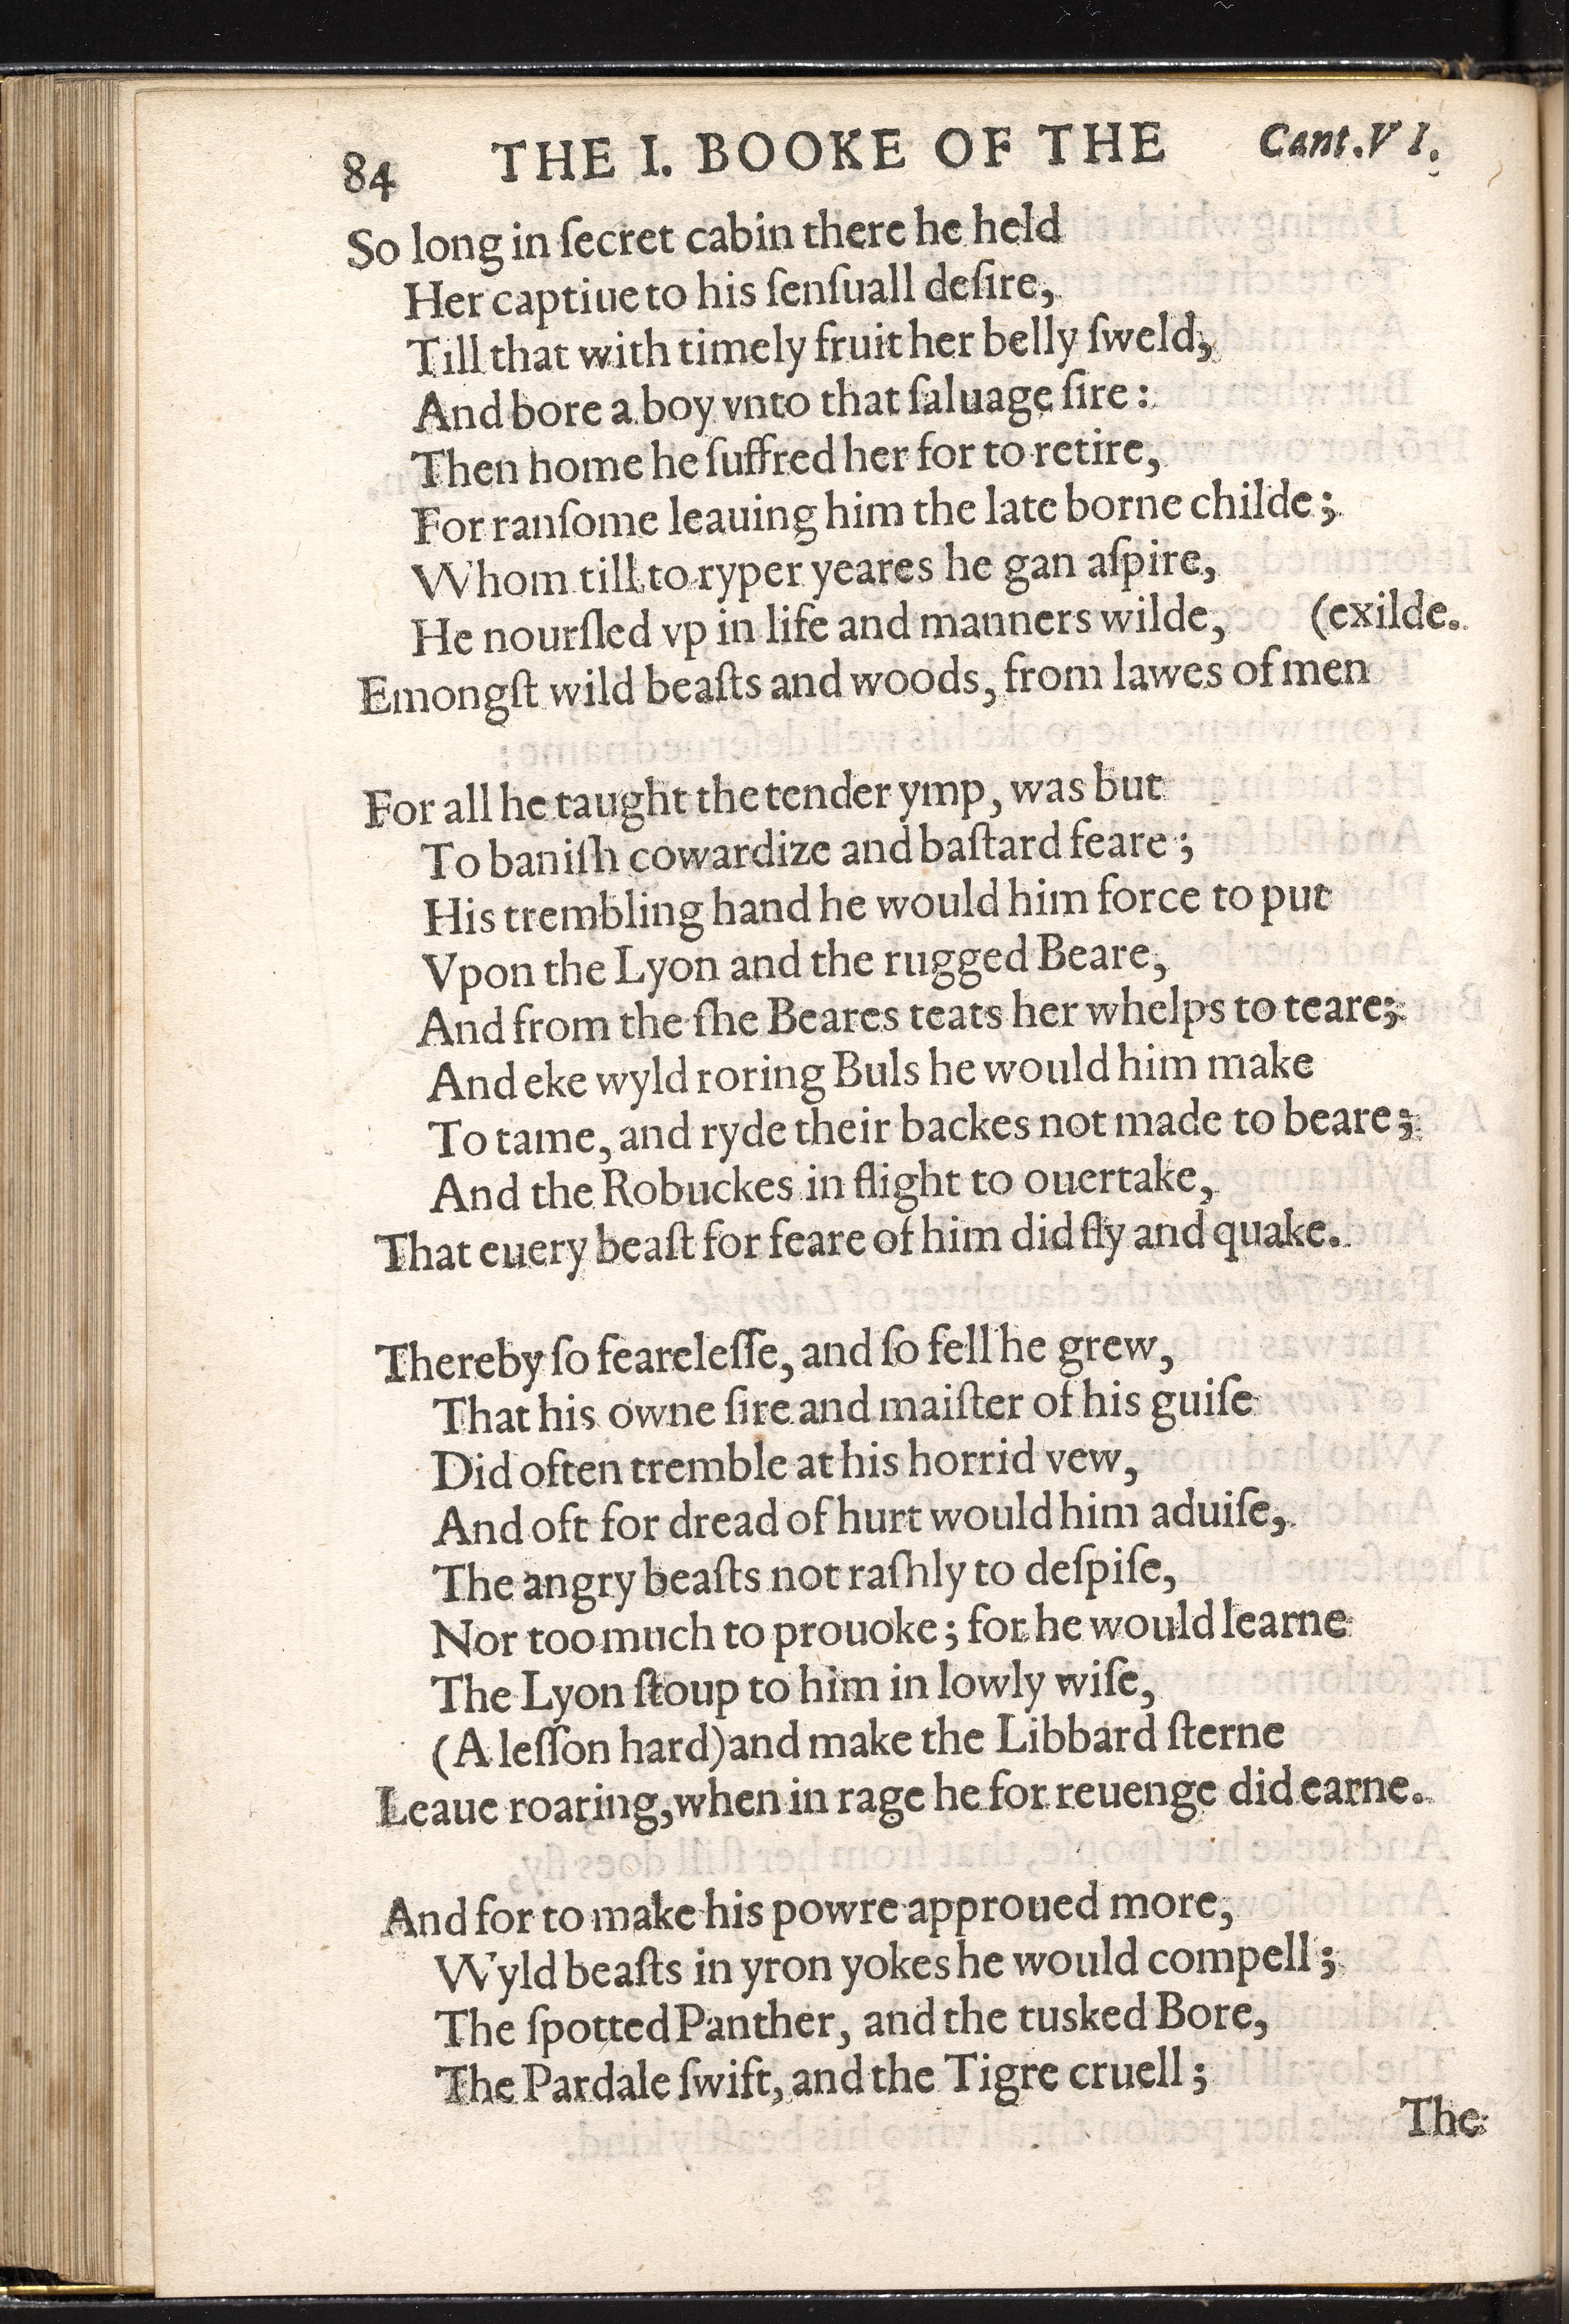 84 THE I. BOOKE OF THE Cant. VI.
So long in ſecret cabin there he held
Her captiue to his ſenſuall deſire,
Till that with timely fruit her belly ſweld,
And bore a boy vnto that ſaluage ſire:
Then home he ſuffred her for to retire,
For ranſome leauing him the late borne childe;
Whom till to ryper yeares he gan aſpire,
He nourſled vp in life and manners wilde, (exilde.
Emongſt wild beaſts and woods, from lawes of men
For all he taught the tender ymp, was but
To baniſh cowardize and baſtard feare;
His trembling hand he would him force to put
Vpon the Lyon and the rugged Beare,
And from the ſhe Beares teats her whelps to teare;
And eke wyld roring Buls he would him make
To tame, and ryde their backes not made to beare;
And the Robuckes in flight to ouertake,
That euery beaſt for feare of him did fly and quake.
Thereby ſo feareleſſe, and ſo fell he grew,
That his owne ſire and maiſter of his guiſe
Did often tremble at his horrid vew,
And oft for dread of hurt would him aduiſe,
The angry beaſts not raſhly to deſpiſe,
Nor too much to prouoke; for he would learne
The Lyon ſtoup to him in lowly wiſe,
(A leſſon hard) and make the Libbard ſterne
Leaue roaring, when in rage he for reuenge did earne.
And for to make his powre approued more,
Wyld beaſts in yron yokes he would compell;
The ſpotted Panther, and the tusked Bore,
The Pardale ſwift, and the Tigre cruell;
The